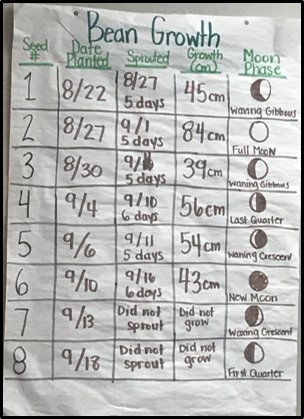 Bean Growth
Seed # Date Planted Sprouted Growth (cm) Moon Phase
1 8/22 8/27 5 days 45cm Waning Gibbous
2 8/27 9/1 5 days 84cm Full Moon
3 8/30 5 days 39cm Waning Gibbous
4 9/4 9/10 6 days 56cm Last Quarter
5 9/6 9/11 5 days 54cm Waning Crescent
6 9/10 9/16 6 days 43cm New Moon
7 9/13 Did not sprout Did not grow Waxing Crescent
8 9/18 Did not sprout Did not grow First Quarter